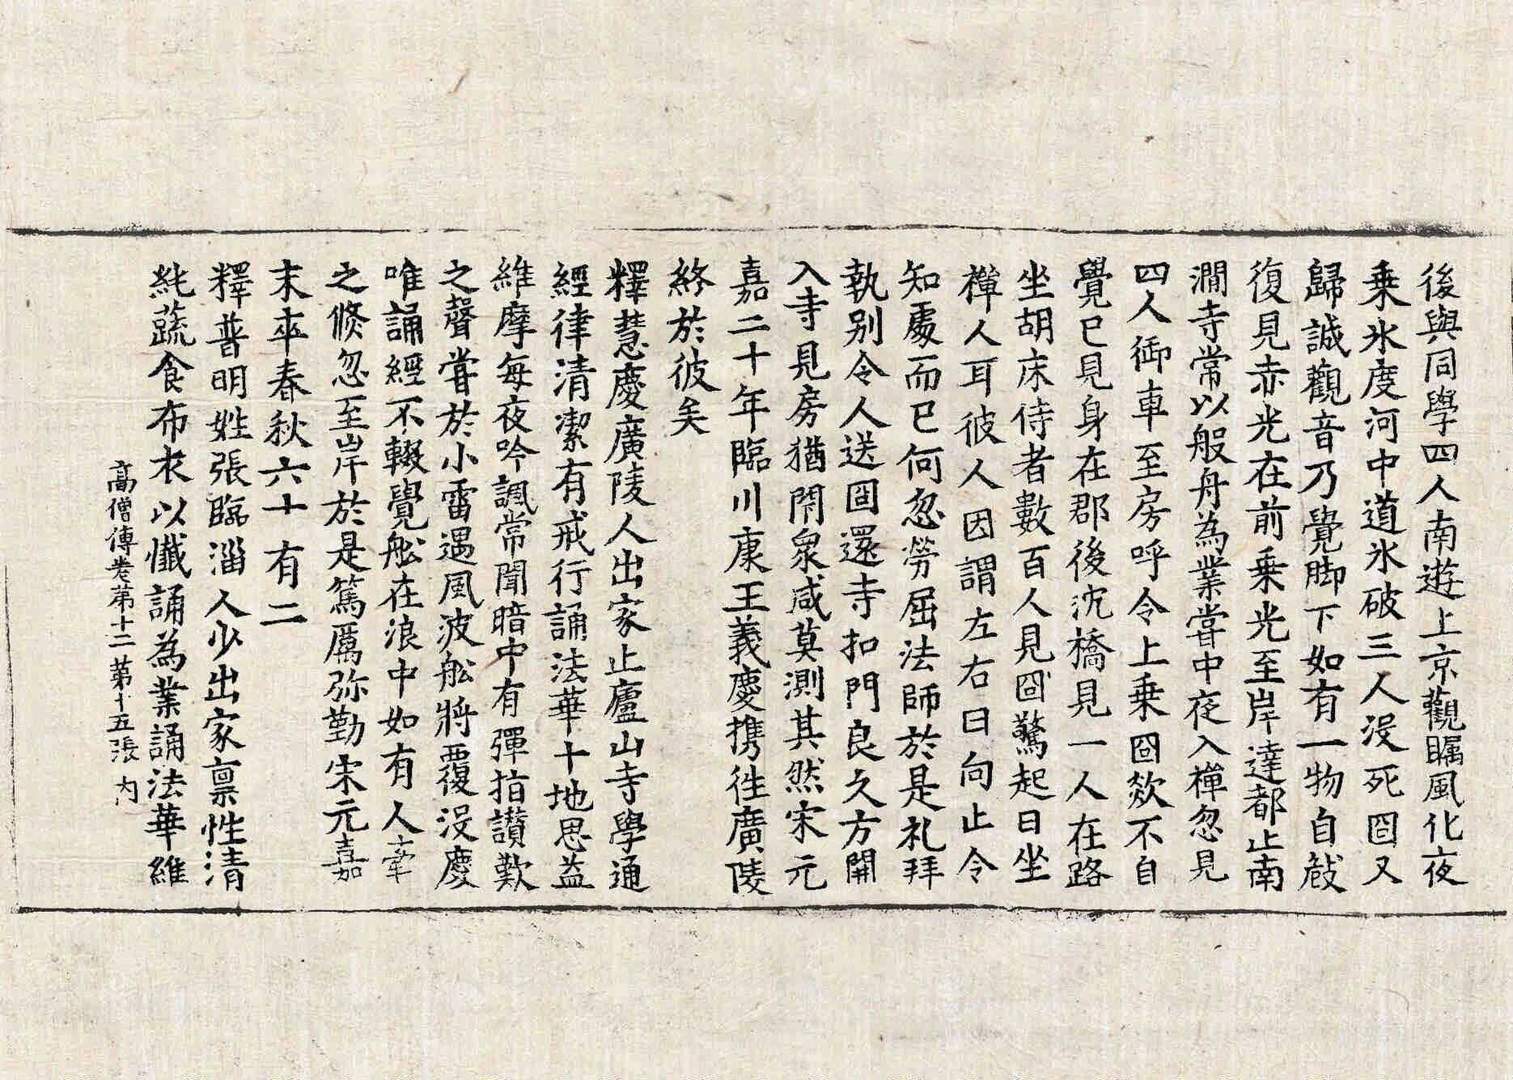 後與同學四人南遊上京觀矚風化夜
乗氷度河中道氷破三人沒死冏又
歸誠觀音乃覺脚下如有一物自㪇
復見赤光在前乗光至岸達都止南
澗寺常以般舟為業甞中夜入禪忽見
四人御車至房呼令上乗冏欻不自
覺已見身在郡後沈橋見一人在路
坐胡床侍者數百人見冏驚起曰坐
禪人耳彼人因謂左右曰向止令
知處而已何忽勞屈法師於是礼拜
執别令人送冏還寺扣門良久方開
入寺見房猶閇衆咸莫測其然宋元
嘉二十年臨川康王義慶携徃廣陵
終於彼矣
釋慧慶廣陵人出家止廬山寺學通
經律清潔有戒行誦法華十地思益
維摩每夜吟諷常聞暗中有彈指讃歎
之聲甞於小雷遇風波舩將覆沒慶
唯誦經不輟覺舩在浪中如有人牽
之倏忽至岸於是篤厲弥勤宋元嘉
末卒春秋六十有二
釋普明姓張臨淄人少出家禀性清
純蔬食布衣以懺誦為業誦法華維
高僧傳卷第十二 第十五張 内